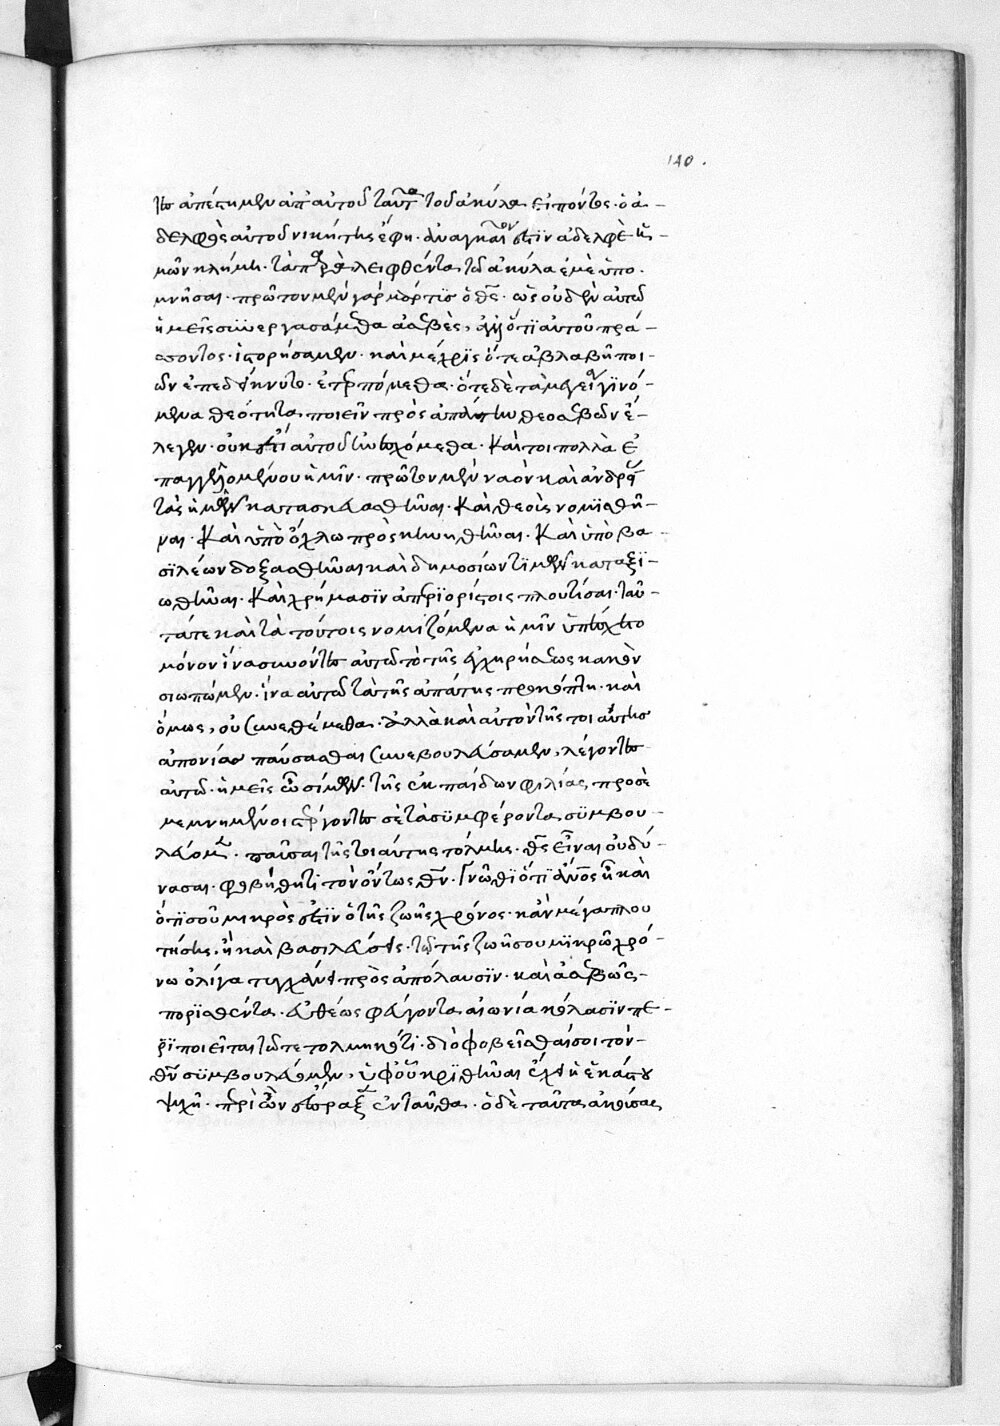 140.
τες ἀπέστημεν ἀπ' αὐτοῦ ταῦτα τοῦ ἀκύλα εἰπόντος· ὁ ἀ-
δελφὸς αὐτοῦ νικήτης ἔφη· ἀναγκαῖον ἐστὶν ἀδελφὲ ἡ-
μῶν κλήμη· τὰ παραλειφθέντα τῶ ἀκύλα ἐμὲ ὑπο-
μνῆσαι· πρῶτον μὲν γὰρ μάρτυς ὁ θς· ὡς οὐδὲν αὐτῶ
ἡμεῖς συνεργασάμεθα ἀσεβὲς, ἀλλ' ὅτι αὐτοῦ πρά-
σσοντος· ἱστορήσαμεν· καὶ μέχρις ὅτε ἀβλαβῆ ποι-
ῶν ἐπεδείκνυτο· ἐτερπόμεθα· ὅτε δὲ τὰ μαγεία γινό-
μενα θεότητι ποιεῖν πρὸς ἀπάτην θεοσεβῶν ἔ-
λεγεν· οὐκ ἔτι αὐτοῦ ἠνεσχόμεθα· καίτοι πολλὰ ἐ
παγγελλομένου ἡμῖν· πρῶτον μὲν ναὸν καὶ ἀνδριάν
τας ἡμῶν κατασκευασθῆναι· καὶ θεοὶς νομισθῆ-
ναι· καὶ ὑπὸ ὄχλω προσκυνηθῆναι· καὶ ὑπὸ βα-
σιλέων δοξασθῆναι καὶ δημοσίων τιμῶν καταξι-
ωθῆναι· καὶ χρήμασιν ἀπεριορίστοις πλουτίσαι· ταῦ-
τά τε καὶ τὰ τούτοις νομιζόμενα ἡμῖν ὑπέσχετο
μόνον ἵνα συνόντες αὐτῶ τὸ τῆς ἐγχειρήσεως κακὸν
σιωπῶμεν· ἵνα αὐτῶ τὰ τῆς ἀπάτης προκόπτη· καὶ
ὅμως, οὐ συνεθέμεθα· ἀλλὰ καὶ αὐτὸν τῆς τοιαύτης
ἀπονίας παύσασθαι συνεβουλεύσαμεν, λέγοντες
αὐτῶ· ἡμεῖς ὦ σίμων· τῆς ἐκ παίδων φιλίας προσὲ
μεμνημένοι στέργοντες σὲ τὰ συμφέροντα συμβου-
λεύομεν· παῦσαι τῆς τοιαύτης τόλμης· θς εἶναι οὐ δύ-
νασαι· φοβήθητι τὸν ὄντως θν· γνῶθι ὅτι ἀνος εἶ καὶ
ὅτι σοῦ μικρὸς ἐστὶν ὁ τῆς ζωῆς χρόνος· κἂν μέγα πλου
τήσης, ἢ καὶ βασιλεύσεις· τῶ τῆς ζωῆς σου μικρῶ χρό-
νω ὀλίγα τυγχάνει πρὸς ἀπόλαυσιν· καὶ ἀσεβῶς
πορισθέντα· εὐθέως φεύγοντα αἰωνία κόλασιν πε-
ριποιεῖται τῶ τετολμηκότι· διὸ φοβεῖσθαί σοι τὸν
θν συμβουλεύομεν, ὑφ' οὗ κριθῆναι ἔχει ἡ ἑκάστου
ψυχῆ· περὶ ὧν ἔπραξεν ἐνταῦθα· ὁ δὲ ταῦτα ἀκούσας